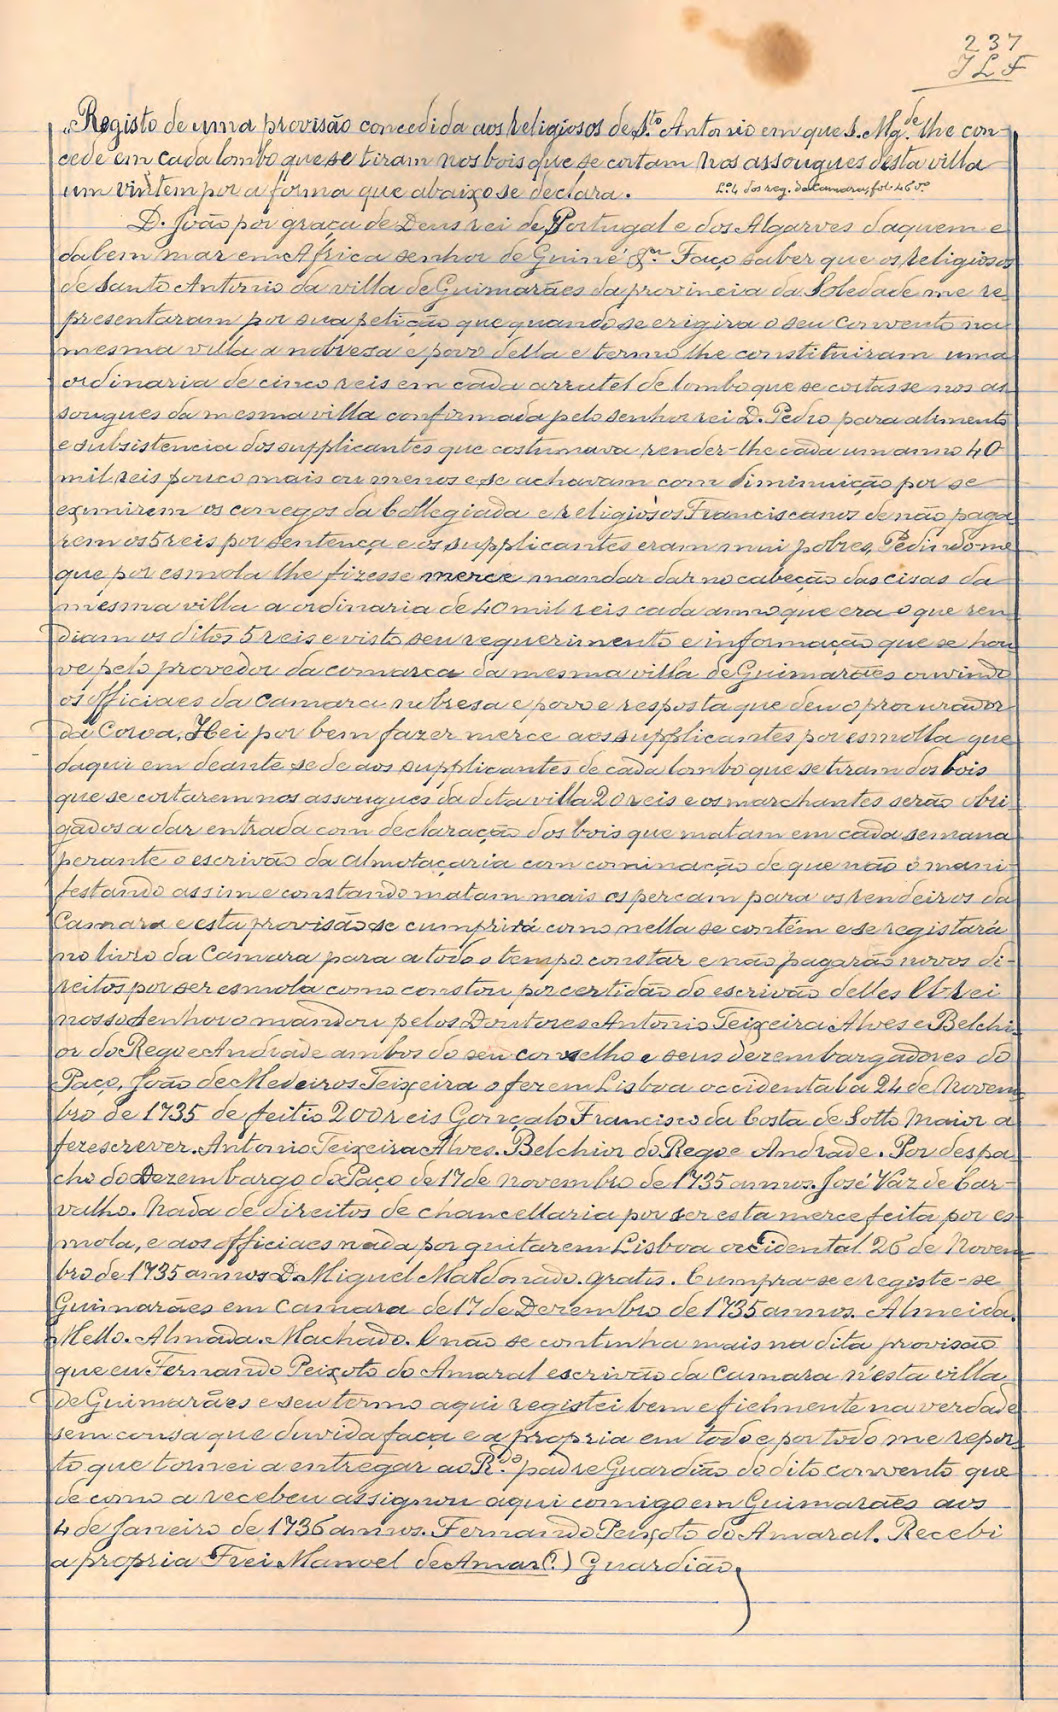 237
J L F
„Registo de uma provisão concedida aos religiosos de S.to Antonio em que S. Mg.de lhe con-
cede em cada lombo que se tiram nos bois que se cortam nos assougues desta villa
um vintem por a forma que abaixo se declara. L.º 4 dos reg. da Camara, fol. 46 v.º
D. João por graça de Deus rei de Portugal e dos Algarves daquem e
dalem mar em Africa senhor de Guiné &.ª Faço saber que os religiosos
de Santo Antonio da villa de Guimarães da provincia da Soledade me re-
presentaram por sua petição que quando se erigira o seu convento na
mesma villa a nobresa e povo della e termo lhe constituiram uma
ordinaria de cinco reis em cada arratel de lombo que se cortasse nos as-
sougues da mesma villa confirmada pelo senhor rei D. Pedro para alimento
e subsistencia dos supplicantes que costumava render-lhe cada um anno 40
mil reis pouco mais ou menos e se achavam com diminuição por se
eximirem os conegos da Collegiada e religiosos Franciscanos de não paga-
rem os 5 reis por sentença e os supplicantes eram mui pobres, Pedindo-me
que por esmola lhe fizesse merce mandar dar no cabeção das cisas da
mesma villa a ordinaria de 40 mil reis cada anno que era o que ren-
diam os ditos 5 reis e visto seu requerimento e informação que se hou-
ve pelo provedor da comarca da mesma villa de Guimarães ouvindo
os officiaes da camara nobresa e povo e resposta que deu o procurador
da Coroa, Hei por bem fazer merce aos supplicantes por esmolla que
daqui em deante se de aos supplicantes de cada lombo que se tiram dos bois
que se cortarem nos assougues da dita villa 20 reis e os marchantes serão obri-
gados a dar entrada com declaração dos bois que matam em cada semana
perante o escrivão da almotaçaria com cominação de que não o mani-
festando assim e constando matam mais os percam para os rendeiros da
Camara e esta provisão se cumprirá como nella se contém e se registará
no livro da Camara para a todo o tempo constar e não pagarão novos di-
reitos por ser esmola como constou por certidão do escrivão delles El-rei
nosso Senhor o mandou pelos Doutores Antonio Teixeira Alves e Belchi-
or do Rego e Andrade ambos do seu conselho e seus dezembargadores do
Paço, João de Medeiros Teixeira o fez em Lisboa occidental a 24 de Novem-
bro de 1735 de feitio 200 reis Gonçalo Francisco da Costa de Sotto Maior a
fez escrever. Antonio Teixeira Alves. Belchior do Rego e Andrade. Por despa-
cho do Dezembargo do Paço de 17 de novembro de 1735 annos. José Vaz de Car-
valho. Nada de direitos de chancellaria por ser esta merce feita por es-
mola, e aos officiaes nada por quitarem Lisboa occidental 26 de Novem-
bro de 1735 annos D. Miguel Maldonado. gratis. Cumpra-se e registe-se
Guimarães em camara de 17 de Dezembro de 1735 annos. Almeida.
Mello. Almada. Machado. E não se continha mais na dita provisão
que eu Fernando Peixoto do Amaral escrivão da camara n'esta villa
de Guimarães e seu termo aqui registei bem e fielmente na verdade
sem cousa que duvida faça e a propria em todo e por todo me repor-
to que tornei a entregar ao R.do padre Guardião do dito convento que
de como a recebeu assignou aqui comigo em Guimarães aos
4 de Janeiro de 1736 annos. Fernando Peixoto do Amaral. Recebi
a propria Frei Manoel de Amar(?) Guardião